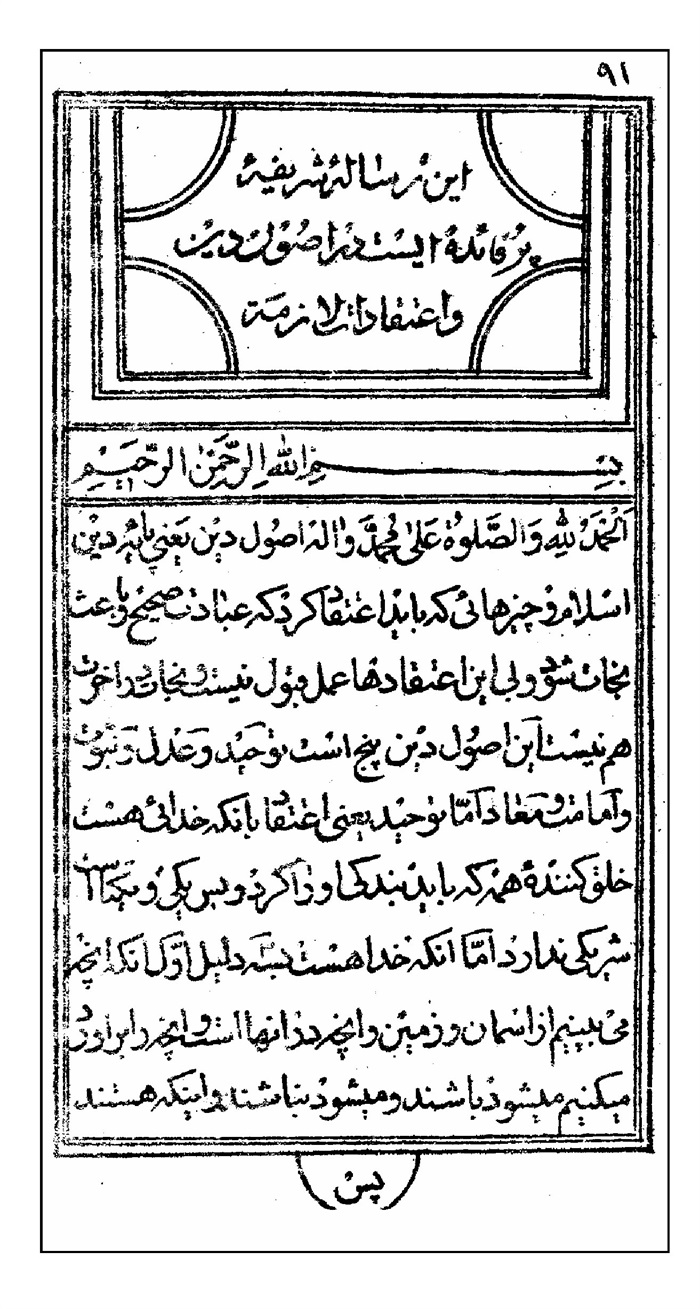 ۹۱
این رسالهٔ شریفهٔ
پر فائدهٔ ایست در اصول دین
و اعتقادات لازمة
بسم الله الرحمن الرحیم
اَلْحَمْدُ لِلّٰهِ وَالصَّلوٰةُ عَلیٰ مُحَمَّدٍ وَالِهِ اصول دین یعنی پایه دین
اسلام و چیزهائی که باید اعتقاد کرد که عبادت صحیح و باعث
نجات شود و بی این اعتقادها عمل قبول نیست و نجات در اخرت
هم نیست این اصول دین پنج است توحید و عدل و نبوت
و امامت و معاد اَمّا توحید یعنی اعتقاد بانکه خدائی هست
خلق کنندهٔ همه که باید بندگی او را کرد و بس یکی و یکتا است
شریکی ندارد امّا انکه خدا هست بسه دلیل اوّل انکه انچه
می بینیم از اسمان و زمین و انچه در انها است و انچه را براورد
میکنیم میشود باشند و میشود نباشند و اینکه هستند
پس